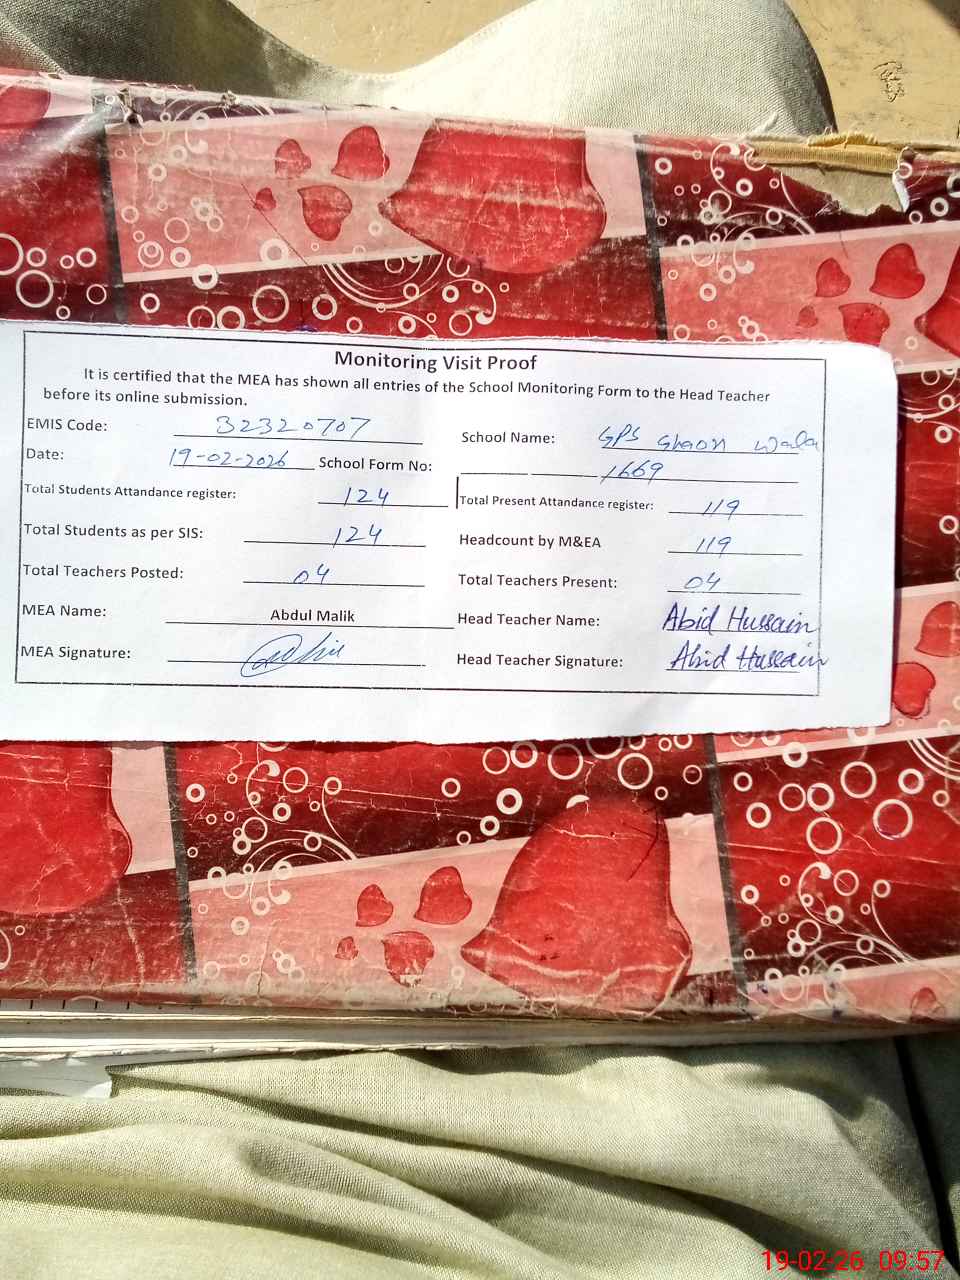 Monitoring Visit Proof
It is certified that the MEA has shown all entries of the School Monitoring Form to the Head Teacher
before its online submission.
EMIS Code: 32320707 School Name: GPS Ghaon Wala
Date: 19-02-2026 School Form No: 1669
Total Students Attandance register: 124 Total Present Attandance register: 119
Total Students as per SIS: 124 Headcount by M&EA 119
Total Teachers Posted: 04 Total Teachers Present: 04
MEA Name: Abdul Malik Head Teacher Name: Abid Hussain
MEA Signature: Head Teacher Signature: Abid Hussain
19-02-26 09:57